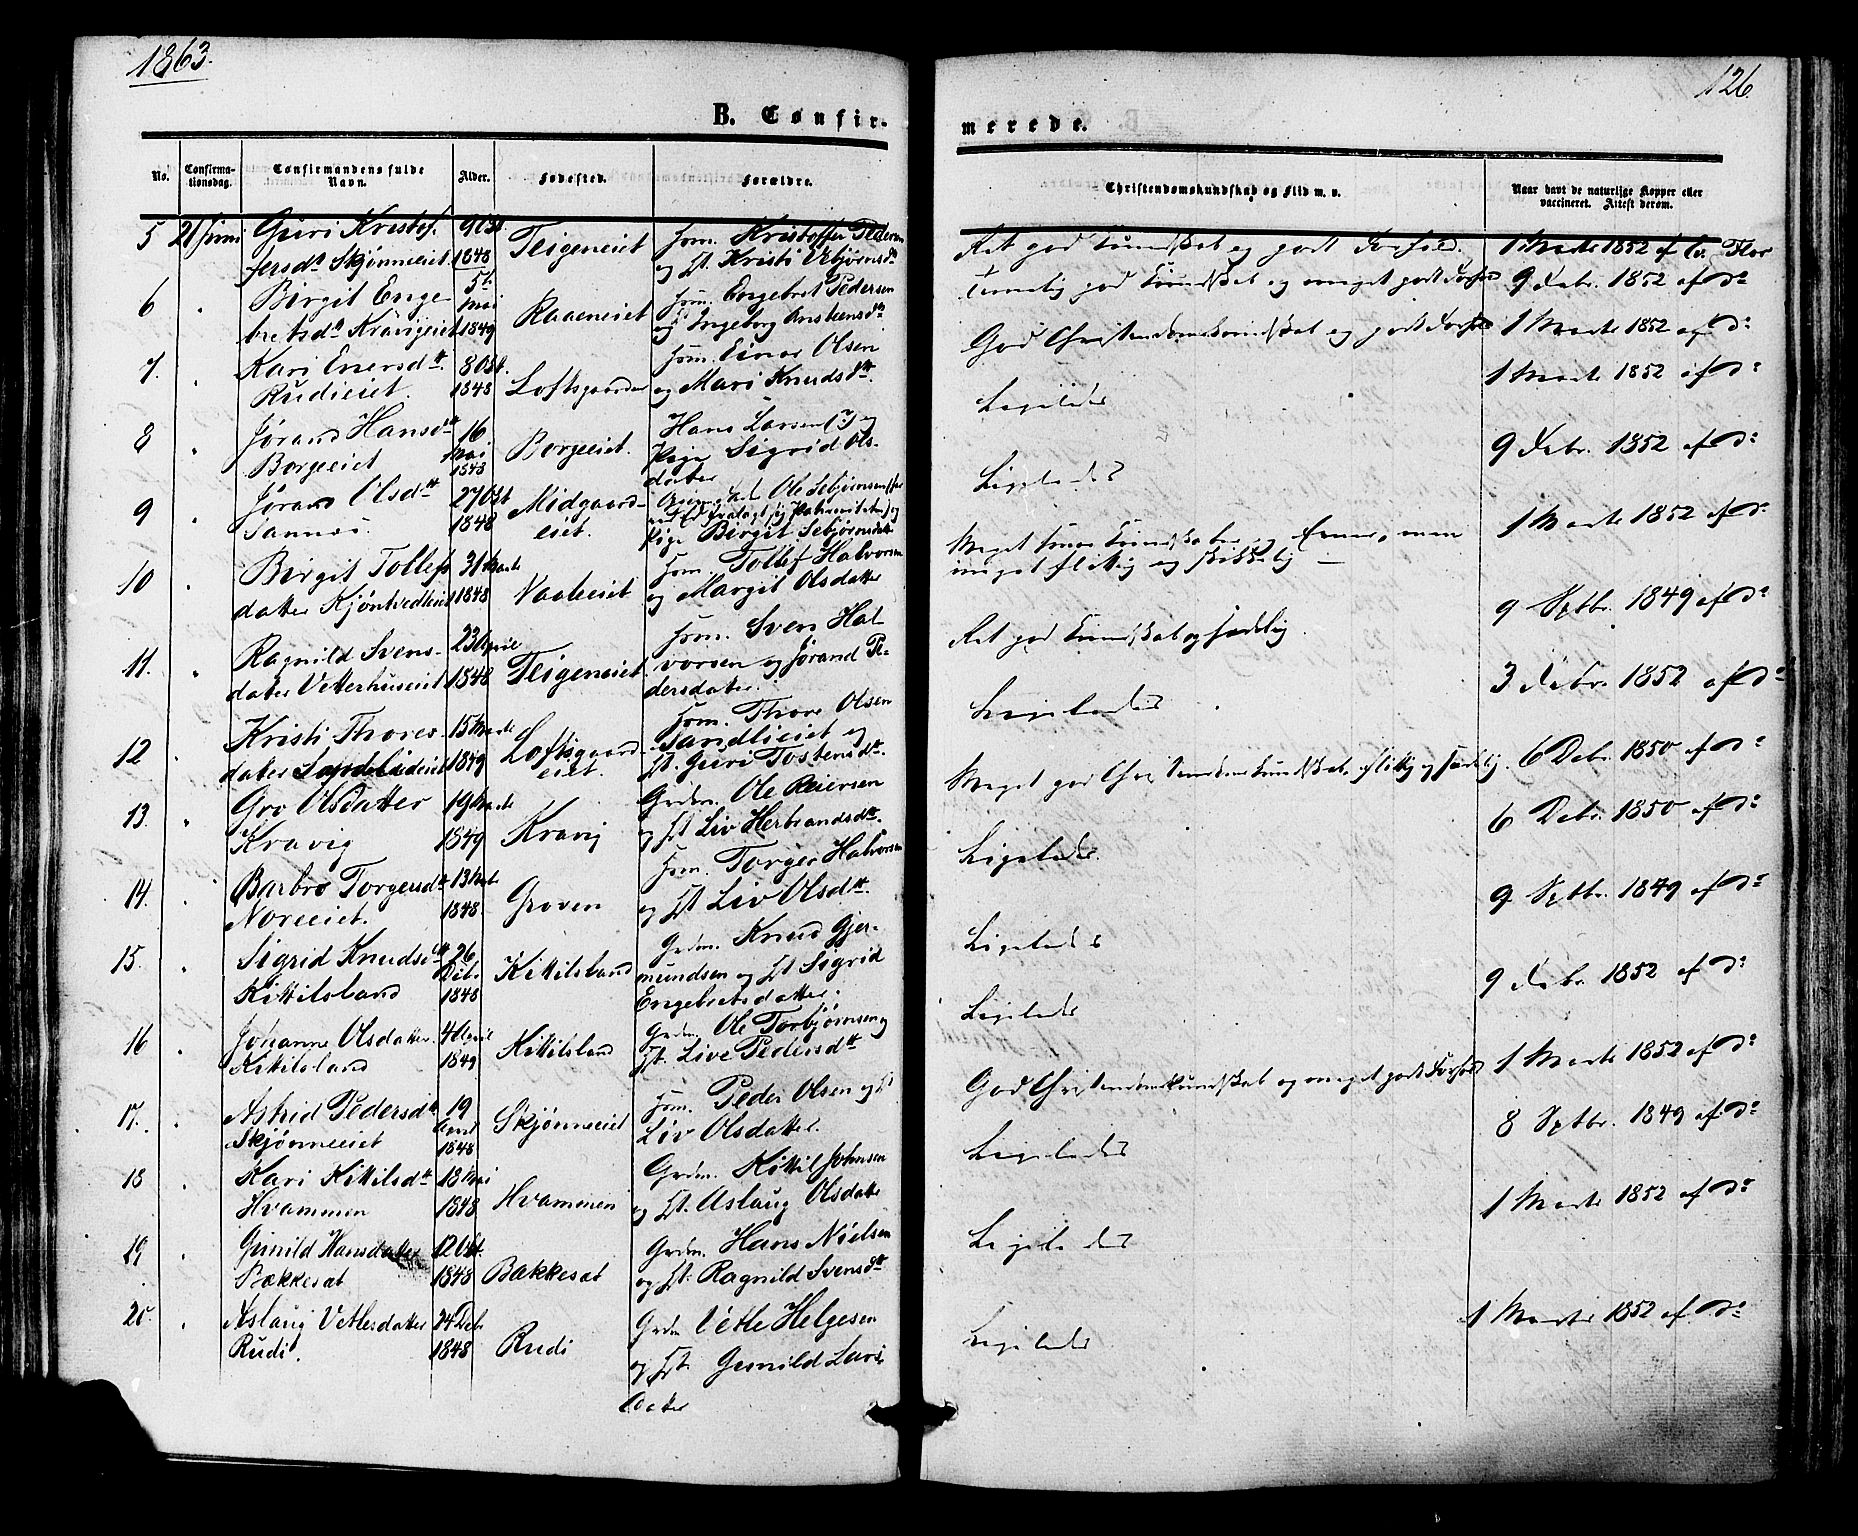 1863.
126
B. Confir-
merede.
No.
Confirma-
tionsdag.
Confirmandens fulde
Navn.
Alder.
Fødested.
Forældre.
Christendomskundskab og Flid m. v.
Naar havt de naturlige Kopper eller
vaccineret. Attest derom.
5 21 Juni Guri Kristof. 9 Oct
fersdtr Skjønneeiet 1848 Teigeneiet
Hsm. Kristoffer Pedersen
og Kristi Vebjørnsdtr
Ret god Kundskab og godt Forhold.
1 Marts 1852 af
6 Birgit Enge 5te Mai
bretsdtr Kravigeiet 1849 Raaeneiet
Hsm. Engebret Pedersen
og Ingeborg
Temmelig god Kundskab og meget godt Forhold
9 Febr. 1852 af Do
7. Kari Enersdtr. 8 Oct.
Rudieiet. 1848 Loftsgaarden
Hsm. Einar Olsen
og Mari Knudsdtr.
God Christendomskundskab og godt Forhold
1 Marts 1852 af Do
8 Jørand Hansdtr 16 Mai
Borgeeiet 1848 Borgeeiet.
Hans Larsen og
Pige Sigrid Ols-
datter
Ligeledes
1 Marts 1852 af Do
9 Jørand Olsdtr 27 Oct
Sannes 1848 Midgaard-
eiet.
Ole Sebjørnsen
Pige Birgit Sebjørnsdatter
Ligeledes
9 Febr. 1852 af Do
10 Birgit Tollefs 31 Marts
datter Kjøntvedteiet 1848 Vaaleeiet
Hsm. Tollef Halvorsen
og Margit Olsdatter
Meget Kundskaber og Evner, men
meget flittig og skikkelig
1 Marts 1852 af Do
11. Ragnild Svens- 23 April
datter Vetterhuseiet 1848 Teigeneiet
Hsm. Sven Hal
vorsen og Jørand Pe-
dersdatter.
Ret god Kundskab og sædelig.
9 Septbr. 1849 af Do
12 Kristi Thores 15 Marts
datter Sandelieiet 1849 Loftsgaard-
eiet.
Hsm. Thore Olsen
Sandlieiet og
Guri Tostensdtr.
Ligeledes
3 Febr. 1852 af Do
13. Gro Olsdatter 19 Marts
Kravig 1849 Kravig
Grdm. Ole Reiersen
og Liv Herbrandsdtr.
Meget god Christendomskundskab, flittig og sædelig.
6 Debr. 1850 af Do
14. Barbro Torgersdtr 13
Noreeiet. 1848. Groven
Hsm. Torger Halvorsen
og Liv Olsdtr.
Ligeledes.
6 Debr. 1850 af Do
15. Sigrid Knudsdtr 26 Debr
Kittilsland 1848 Kittilsland
Grdm. Knud Gjer-
mundsen og Sigrid
Engebretsdatter.
Ligeledes
9 Septbr. 1849 af Do
16 Johanne Olsdatter. 4 April
Kittilsland 1849 Kittilsland
Grdm. Ole Torbjørnsen og
Live Pedersdtr
Ligeledes
9 Febr 1852 af Do
17. Astrid Pedersdtr 19
Skjønneeiet 1848 Skjønneeiet
Hsm. Peder Olsen og
Liv Olsdatter.
God Christendomskundskab og meget godt Forhold
1 Marts 1852 af Do
18 Kari Kittilsdtr 18 Mai
Hvammen 1848 Hvammen
Grdm. Kittil Johnsen
og Aslaug Olsdatter
Ligeledes
8 Septbr. 1849 af Do
19 Gunild Hansdatter 12 Oct.
Bækkesat 1848 Bakkesat
Grdm. Hans Nielsen
og Ragnild Svensdtr
Ligeledes
1 Marts 1852 af Do
20. Aslaug Vetlesdatter 24 Debr
Rudi. 1848 Rudi
Grdm Vetle Helgesen
og Gunild Lars
datter
Ligeledes
1 Marts 1852 af Do